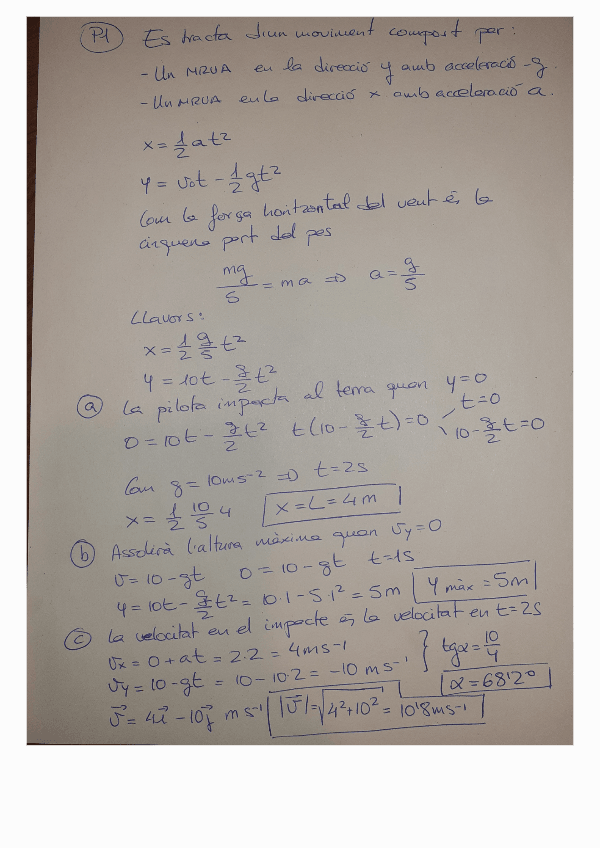 P1 Es tracta d'un moviment compost per:
- Un MRUA en la direcció y amb acceleració -g.
- Un MRUA en la direcció x amb acceleració a.
x = 1/2 at²
y = v₀t - 1/2 gt²
Com la força horitzontal del vent és la
cinquena part del pes
mg/5 = ma ⇒ a = g/5
Llavors:
x = 1/2 g/5 t²
y = 10t - g/2 t²
a La pilota impacta al terra quan y=0
0 = 10t - g/2 t² t(10 - g/2 t) = 0 t=0
10 - g/2 t = 0
Com g = 10ms⁻² ⇒ t = 2s
x = 1/2 10/5 4 x = L = 4m
b Assolirà l'altura màxima quan vy = 0
v = 10 - gt 0 = 10 - gt t = 1s
y = 10t - g/2 t² = 10·1 - 5·1² = 5m y màx = 5m
c La velocitat en el impacte és la velocitat en t = 2s
vx = 0 + at = 2·2 = 4ms⁻¹
vy = 10 - gt = 10 - 10·2 = -10 ms⁻¹ } tgα = 10/4
α = 68'2°
v⃗ = 4i⃗ - 10j⃗ ms⁻¹ |v⃗| = √4²+10² = 10'8ms⁻¹